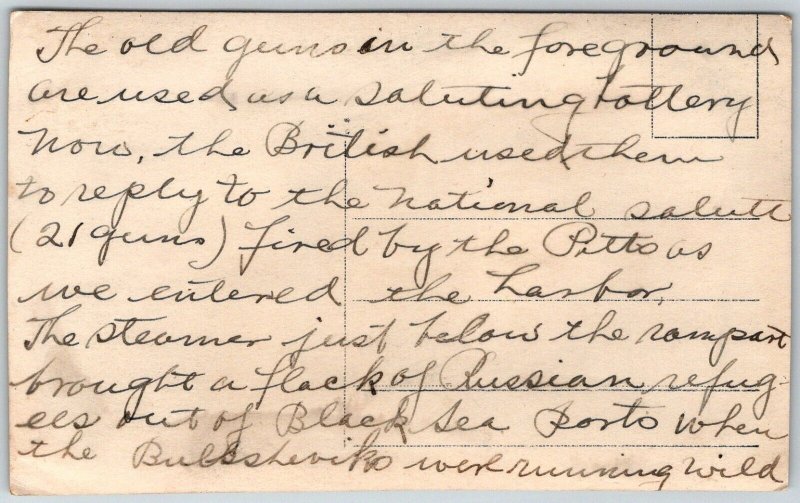 The old guns in the foreground
are used as a saluting battery
now, the British used them
to reply to the national salute
(21 guns) fired by the Pitts as
we entered the harbor.
The steamer just below the rampart
brought a flock of Russian refug-
ees out of Black Sea Ports when
the Bullsheviks were running wild